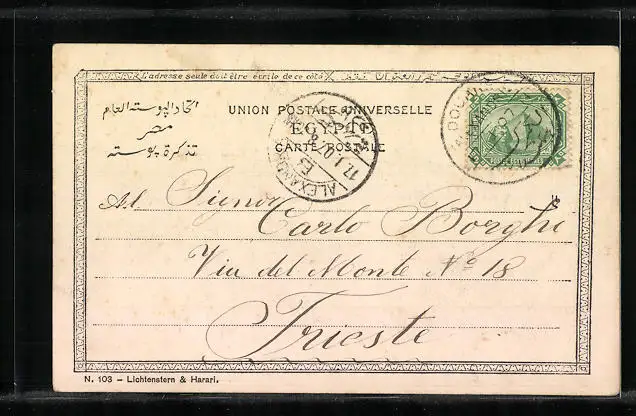 L'adresse seule doit être écrite de ce côté
اتحاد البوسته العام
مصر
تذكرة بوسته
UNION POSTALE UNIVERSELLE
EGYPTE
CARTE POSTALE
ALEXANDRIE
17.I.07
POSTES EGYPTIENNES
Al Signor
Carlo Borghi
Via del Monte Nº 18
Trieste
N. 103 – Lichtenstern & Harari.